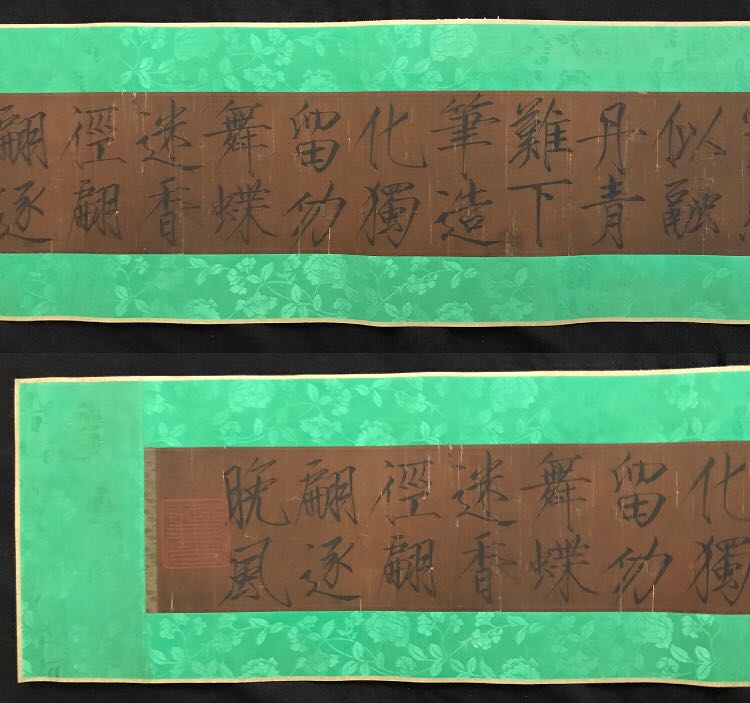 似融
丹青
難下
筆造
化獨
留功
舞蝶
迷香
徑翩
翩逐
化獨
留功
舞蝶
迷香
徑翩
翩逐
晚風